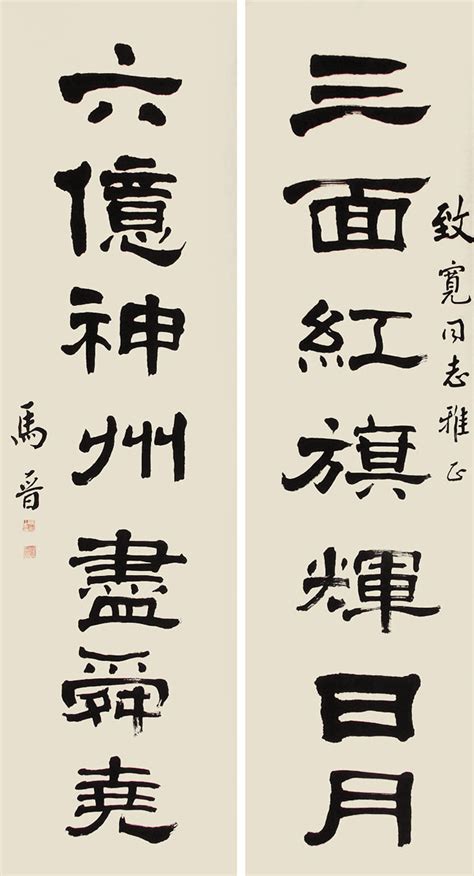 致寬同志雅正
三面紅旗輝日月
六億神州盡舜堯
馬晉